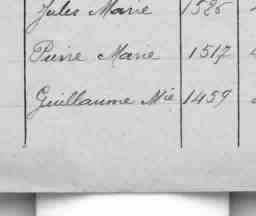 Jules Marie 1526
Pierre Marie 1517
Guillaume Mie 1459